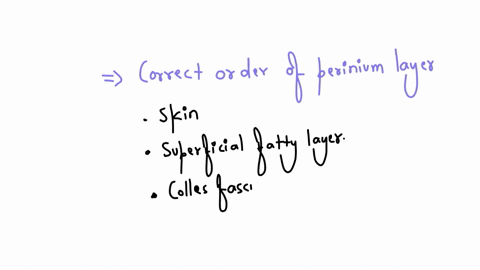 ⇒ Correct order of perinium layer
• Skin
• Superficial fatty layer.
• Colles fasci